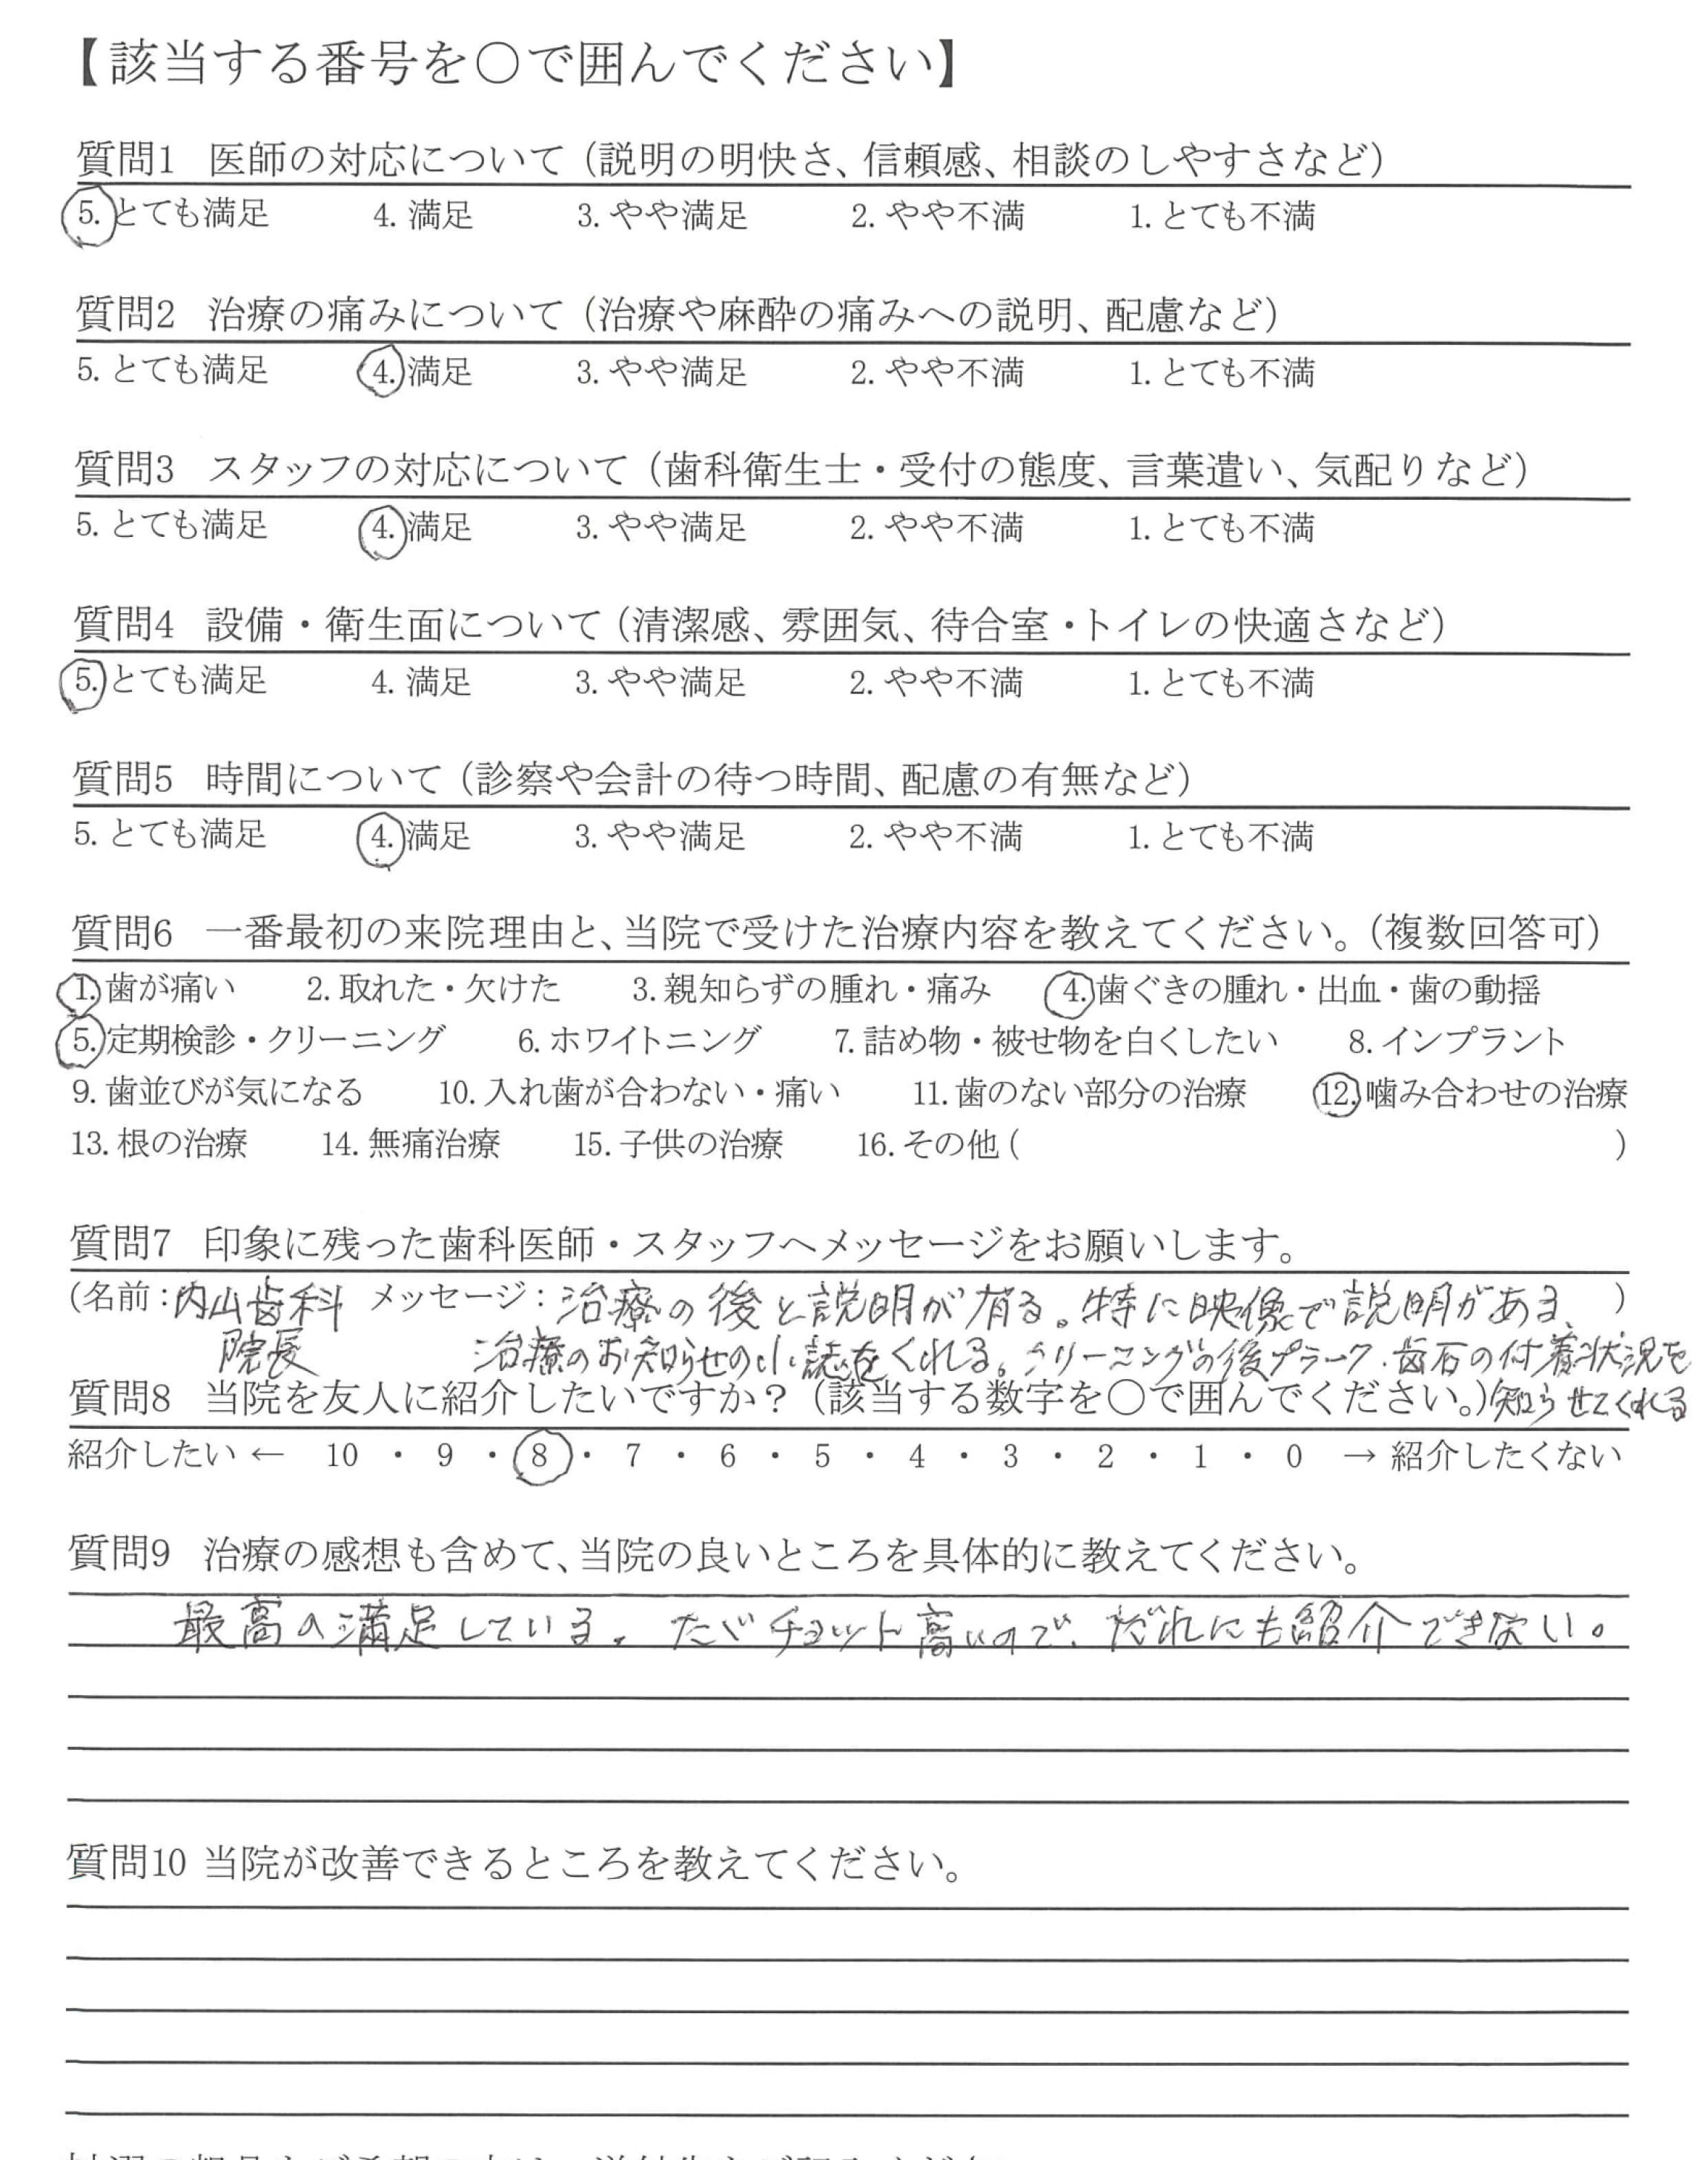 【該当する番号を〇で囲んでください】
質問1 医師の対応について（説明の明快さ、信頼感、相談のしやすさなど）
5. とても満足 4. 満足 3. やや満足 2. やや不満 1. とても不満
質問2 治療の痛みについて（治療や麻酔の痛みへの説明、配慮など）
5. とても満足 4. 満足 3. やや満足 2. やや不満 1. とても不満
質問3 スタッフの対応について（歯科衛生士・受付の態度、言葉遣い、気配りなど）
5. とても満足 4. 満足 3. やや満足 2. やや不満 1. とても不満
質問4 設備・衛生面について（清潔感、雰囲気、待合室・トイレの快適さなど）
5. とても満足 4. 満足 3. やや満足 2. やや不満 1. とても不満
質問5 時間について（診察や会計の待つ時間、配慮の有無など）
5. とても満足 4. 満足 3. やや満足 2. やや不満 1. とても不満
質問6 一番最初の来院理由と、当院で受けた治療内容を教えてください。（複数回答可）
1. 歯が痛い 2. 取れた・欠けた 3. 親知らずの腫れ・痛み 4. 歯ぐきの腫れ・出血・歯の動揺
5. 定期検診・クリーニング 6. ホワイトニング 7. 詰め物・被せ物を白くしたい 8. インプラント
9. 歯並びが気になる 10. 入れ歯が合わない・痛い 11. 歯のない部分の治療 12. 噛み合わせの治療
13. 根の治療 14. 無痛治療 15. 子供の治療 16. その他（ ）
質問7 印象に残った歯科医師・スタッフへメッセージをお願いします。
（名前：内山歯科 メッセージ：治療の後と説明が有る。特に映像で説明がある、）
院長 治療のお知らせの小誌をくれる。クリーニングの後プラーク・歯石の付着状況を
質問8 当院を友人に紹介したいですか？（該当する数字を〇で囲んでください。）知らせてくれる
紹介したい ← 10 ・ 9 ・ 8 ・ 7 ・ 6 ・ 5 ・ 4 ・ 3 ・ 2 ・ 1 ・ 0 → 紹介したくない
質問9 治療の感想も含めて、当院の良いところを具体的に教えてください。
最高の満足している。ただチョット高いので、だれにも紹介できない。
質問10 当院が改善できるところを教えてください。